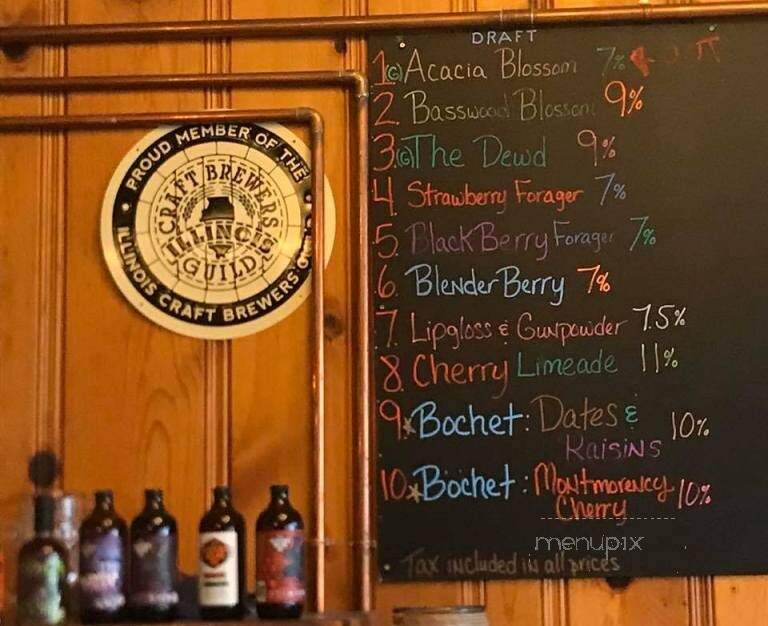 DRAFT
1(G) Acacia Blossom 7%
2. Basswood Blossom 9%
3.(G) The Dewd 9%
4. Strawberry Forager 7%
5. BlackBerry Forager 7%
6. BlenderBerry 7%
7. Lipgloss & Gunpowder 7.5%
8. Cherry Limeade 11%
9.* Bochet: Dates & 10%
Raisins
10.* Bochet: Montmorency 10%
Cherry
Tax included in all prices
PROUD MEMBER OF THE
ILLINOIS CRAFT BREWERS
CRAFT BREWERS
ILLINOIS
GUILD
menupix